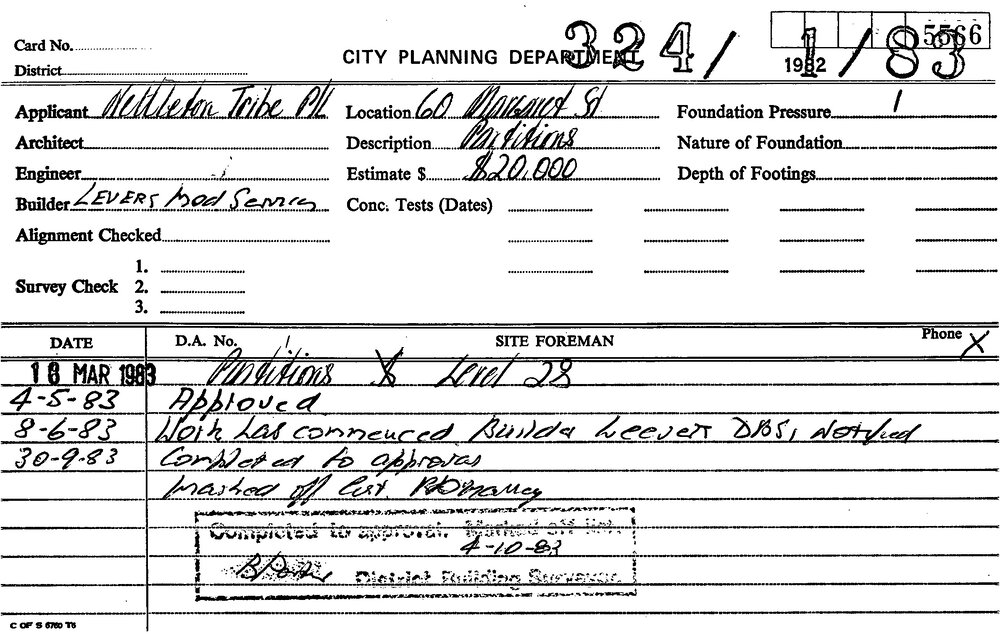 5566
Card No.
CITY PLANNING DEPARTMENT 324/1/83
District
1982
Applicant Nettleton Tribe P/L Location 60 Margaret St Foundation Pressure
Architect Description Partitions Nature of Foundation
Engineer Estimate $ $20,000 Depth of Footings
Builder LEVERS Mod Services Conc. Tests (Dates)
Alignment Checked
1.
Survey Check 2.
3.
DATE D.A. No. SITE FOREMAN Phone X
18 MAR 1983 Partitions X Level 28
4-5-83 Approved
8-6-83 Work has commenced Builder DBS, Notified
30-9-83 Completed to approval
Marked off list.
Completed to approval. Marked off list.
4-10-83
District Building Surveyor.
C OF S 6760 T6